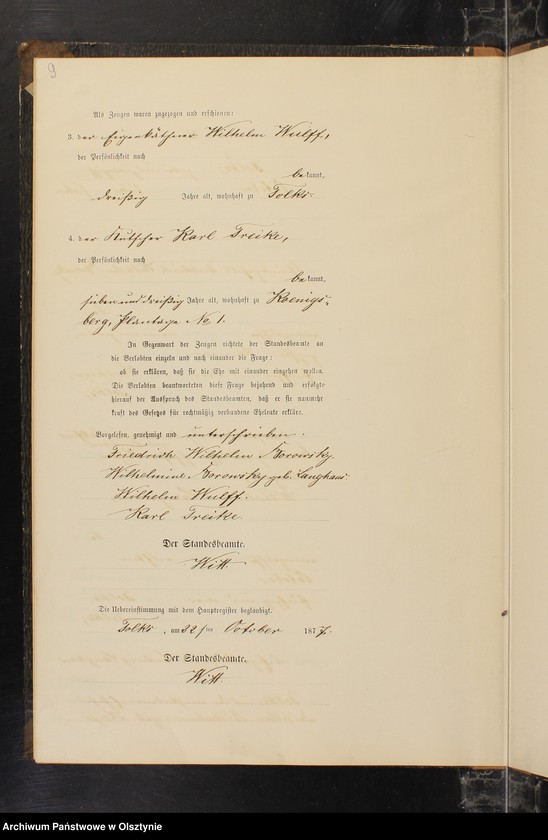 9
Als Zeugen waren zugezogen und erschienen:
3. der Eigenkäthner Wilhelm Wulff,
der Persönlichkeit nach
bekannt,
dreißig Jahre alt, wohnhaft zu Tolks.
4. der Kutscher Karl Treike,
der Persönlichkeit nach
bekannt,
sieben und dreißig Jahre alt, wohnhaft zu Koenigs-
berg, Plantage No 1.
In Gegenwart der Zeugen richtete der Standesbeamte an
die Verlobten einzeln und nach einander die Frage:
ob sie erklären, daß sie die Ehe mit einander eingehen wollen.
Die Verlobten beantworteten diese Frage bejahend und erfolgte
hierauf der Ausspruch des Standesbeamten, daß er sie nunmehr
kraft des Gesetzes für rechtmäßig verbundene Eheleute erkläre.
Vorgelesen, genehmigt und unterschrieben.
Friedrich Wilhelm Borowsky.
Wilhelmine Borowsky geb. Langhans.
Wilhelm Wulff.
Karl Treike.
Der Standesbeamte.
Witt.
Die Uebereinstimmung mit dem Hauptregister beglaubigt.
Tolks, am 22 ten October 1877.
Der Standesbeamte.
Witt.
Archiwum Państwowe w Olsztynie